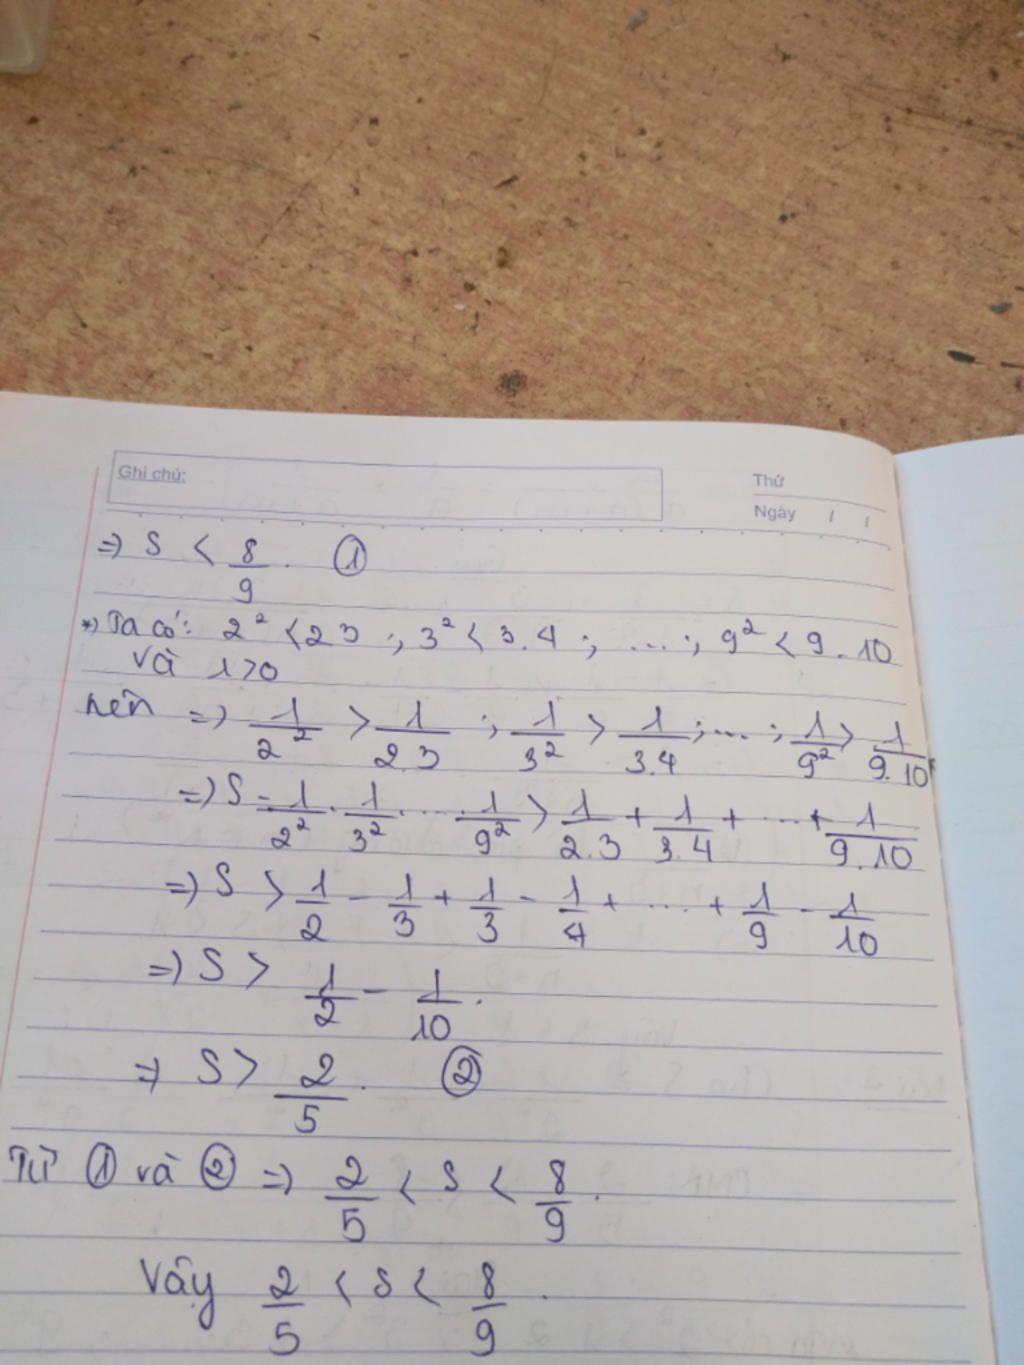 Ghi chú:
Thứ
Ngày / /
=> S < 8/9. ①
*) Ta có: 2² < 2 3 ; 3² < 3.4 ; ... ; 9² < 9.10
và 1>0
nên => 1/2² > 1/2.3 ; 1/3² > 1/3.4 ; ... ; 1/9² > 1/9.10
=> S = 1/2² . 1/3² . ... 1/9² > 1/2.3 + 1/3.4 + ... + 1/9.10
=> S > 1/2 - 1/3 + 1/3 - 1/4 + ... + 1/9 - 1/10
=> S > 1/2 - 1/10.
=> S > 2/5. ②
Từ ① và ② => 2/5 < S < 8/9.
Vậy 2/5 < S < 8/9.